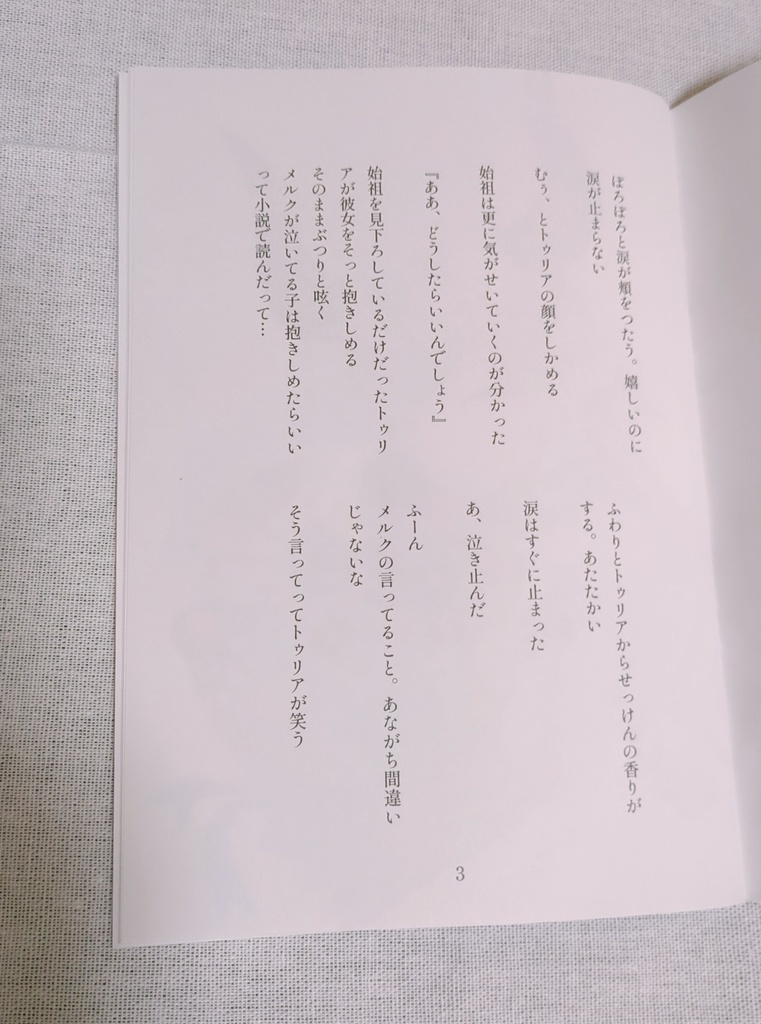 ぽろぽろと涙が頬をつたう。嬉しいのに
涙が止まらない
むぅ、とトゥリアの顔をしかめる
始祖は更に気がせいていくのが分かった
『ああ、どうしたらいいんでしょう』
始祖を見下ろしているだけだったトゥリ
アが彼女をそっと抱きしめる
そのままぶつりと呟く
メルクが泣いてる子は抱きしめたらいい
って小説で読んだって…
ふわりとトゥリアからせっけんの香りが
する。あたたかい
涙はすぐに止まった
あ、泣き止んだ
ふーん
メルクの言ってること。あながち間違い
じゃないな
そう言ってってトゥリアが笑う
3